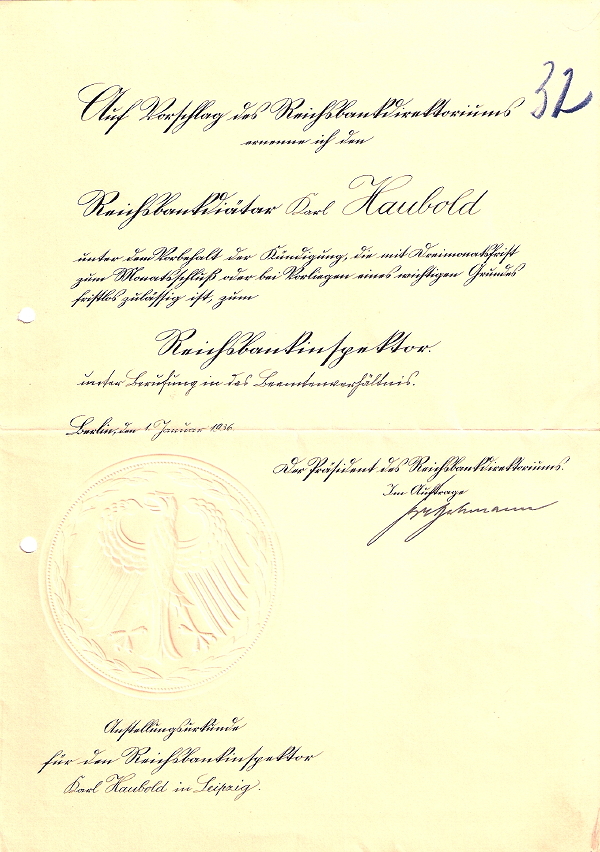 32
Auf Vorschlag des Reichsbankdirektoriums
ernenne ich den
Reichsbankdiätar Karl Haubold
unter dem Vorbehalt der Kündigung, die mit Dreimonatsfrist
zum Monatsschluß oder bei Vorliegen eines wichtigen Grundes
fristlos zulässig ist, zum
Reichsbankinspektor.
unter Berufung in das Beamtenverhältnis.
Berlin, den 1. Januar 1936.
Der Präsident des Reichsbankdirektoriums.
Im Auftrage
Anstellungsurkunde
für den Reichsbankinspektor
Karl Haubold in Leipzig.